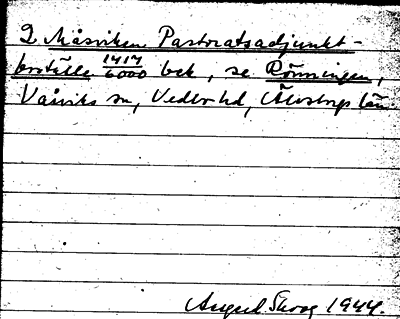 2 Måsviken Pastoratsadjunkt-
boställe 1417/6000 bek, se Rönningen,
Vårviks sn, Vedbo hd, Älvsborgs län.
August Skoog 1944.